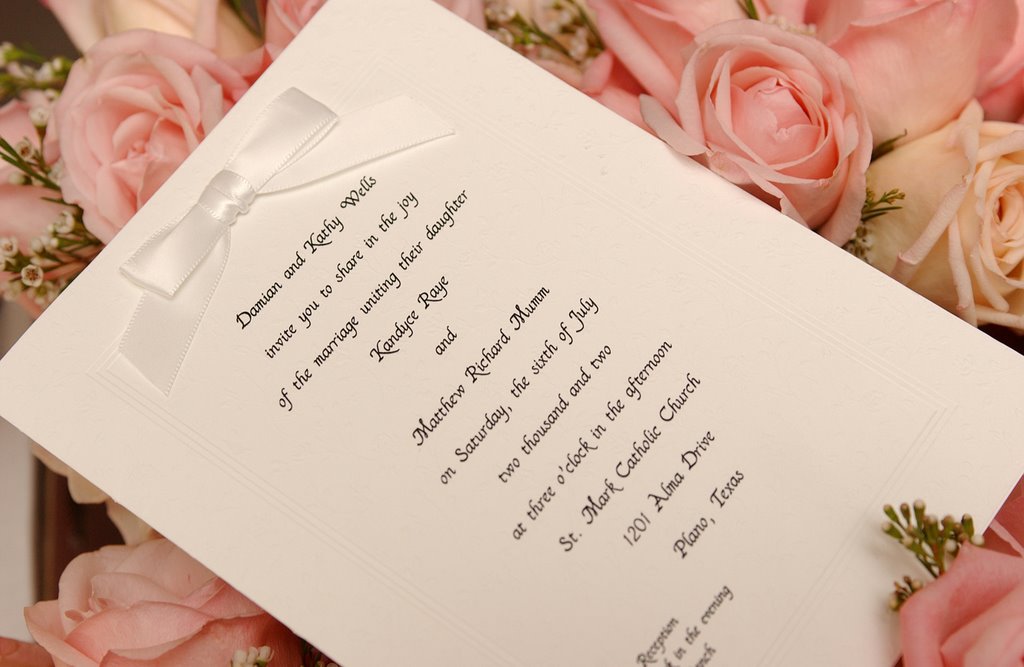 Damian and Kathy Wells
invite you to share in the joy
of the marriage uniting their daughter
Kandyce Raye
and
Matthew Richard Mumm
on Saturday, the sixth of July
two thousand and two
at three o'clock in the afternoon
St. Mark Catholic Church
1201 Alma Drive
Plano, Texas
Reception
in the evening